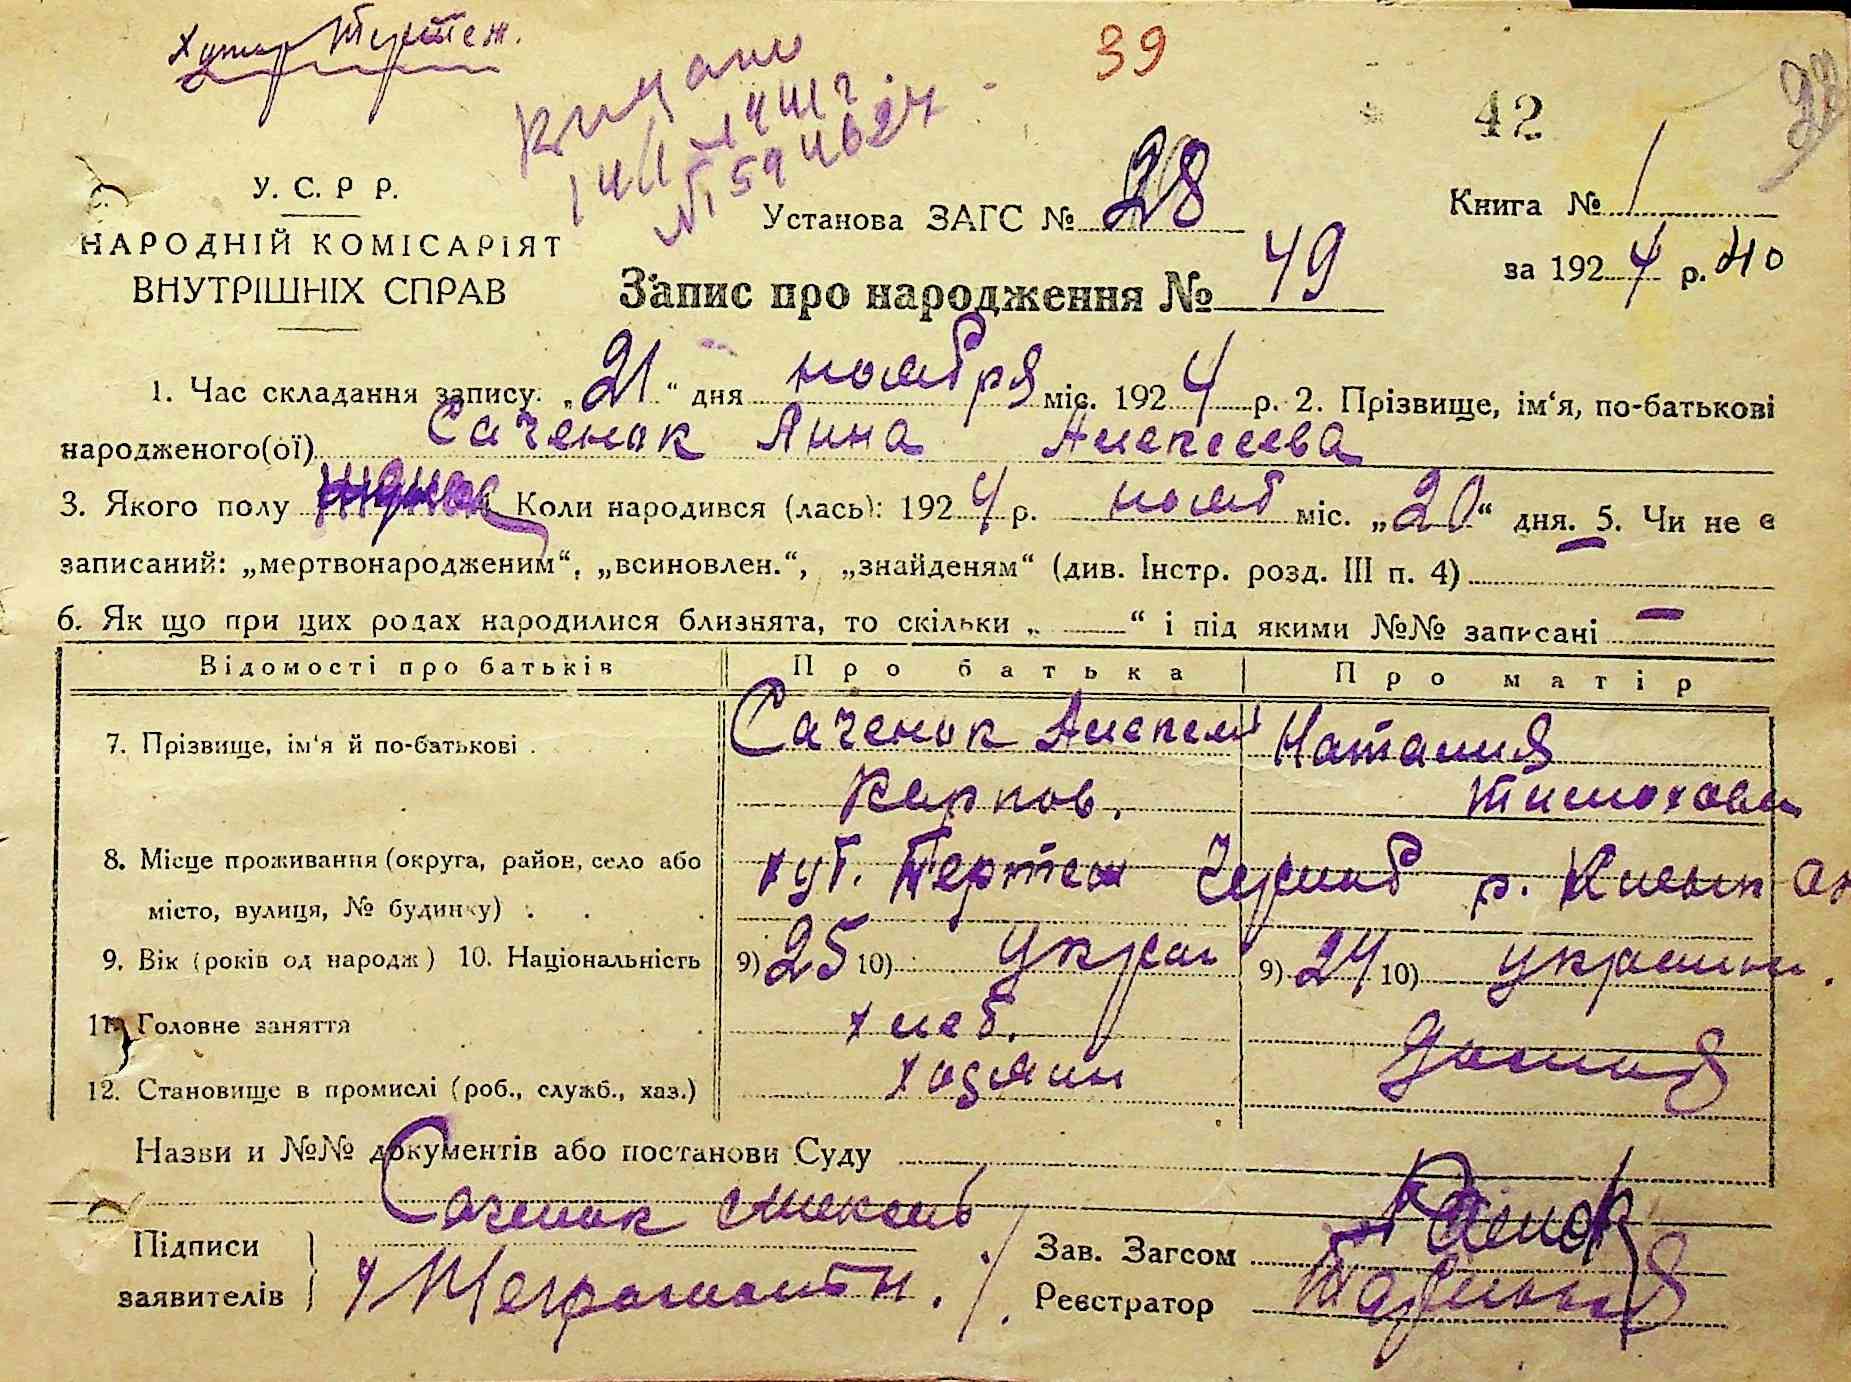 Хутир Тертеж.
39
42
28
У. С. Р Р.
НАРОДНІЙ КОМІСАРІЯТ
ВНУТРІШНІХ СПРАВ
Установа ЗАГС № 28
Книга № 1
за 1924 р.
Запис про народження № 49
1. Час складання запису: „21“ дня ноября міс. 1924 р. 2. Прізвище, ім‘я, по-батькові
народженого(ої) Саченок Анна Алексеева
3. Якого полу Коли народився (лась): 1924 р. нояб міс. „20“ дня. 5. Чи не є
записаний: „мертвонародженим“, „всиновлен.“, „знайденям“ (див. Інстр. розд. III п. 4)
6. Як що при цих родах народилися близнята, то скільки „ “ і під якими №№ записані —
Відомості про батьків Про батька Про матір
7. Прізвище, ім‘я й по-батькові . Саченок Алексей Наталия
Карпов. Тимохова
8. Місце проживання (округа, район, село або хут. Тертеж р.
місто, вулиця, № будинку) . . .
9. Вік (років од народж) 10. Національність 9) 25 10) украи 9) 24 10) украинк.
11. Головне заняття хлеб.
12. Становище в промислі (роб., служб., хаз.) хозяин
Назви и №№ документів або постанови Суду
Саченок Алексей
Підписи
заявителів неграмотн.
Зав. Загсом
Реєстратор